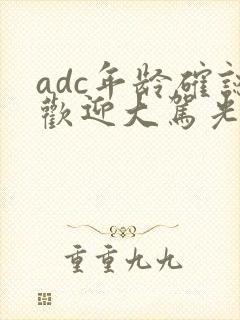 adc年龄確認
歡迎大駕光
重重九九